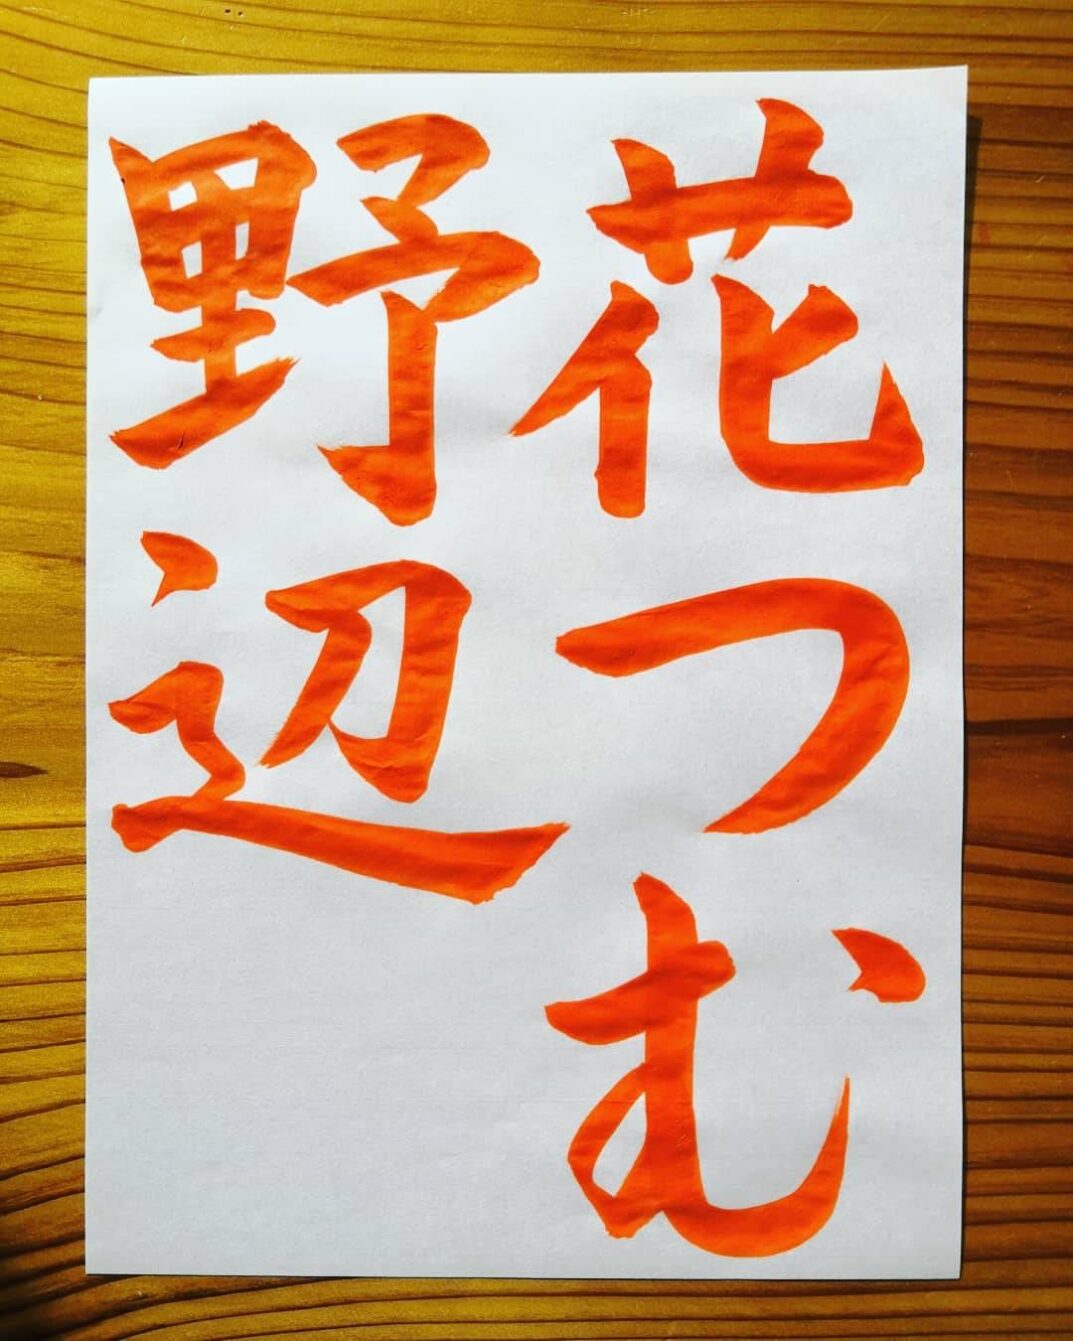 花つむ
野辺